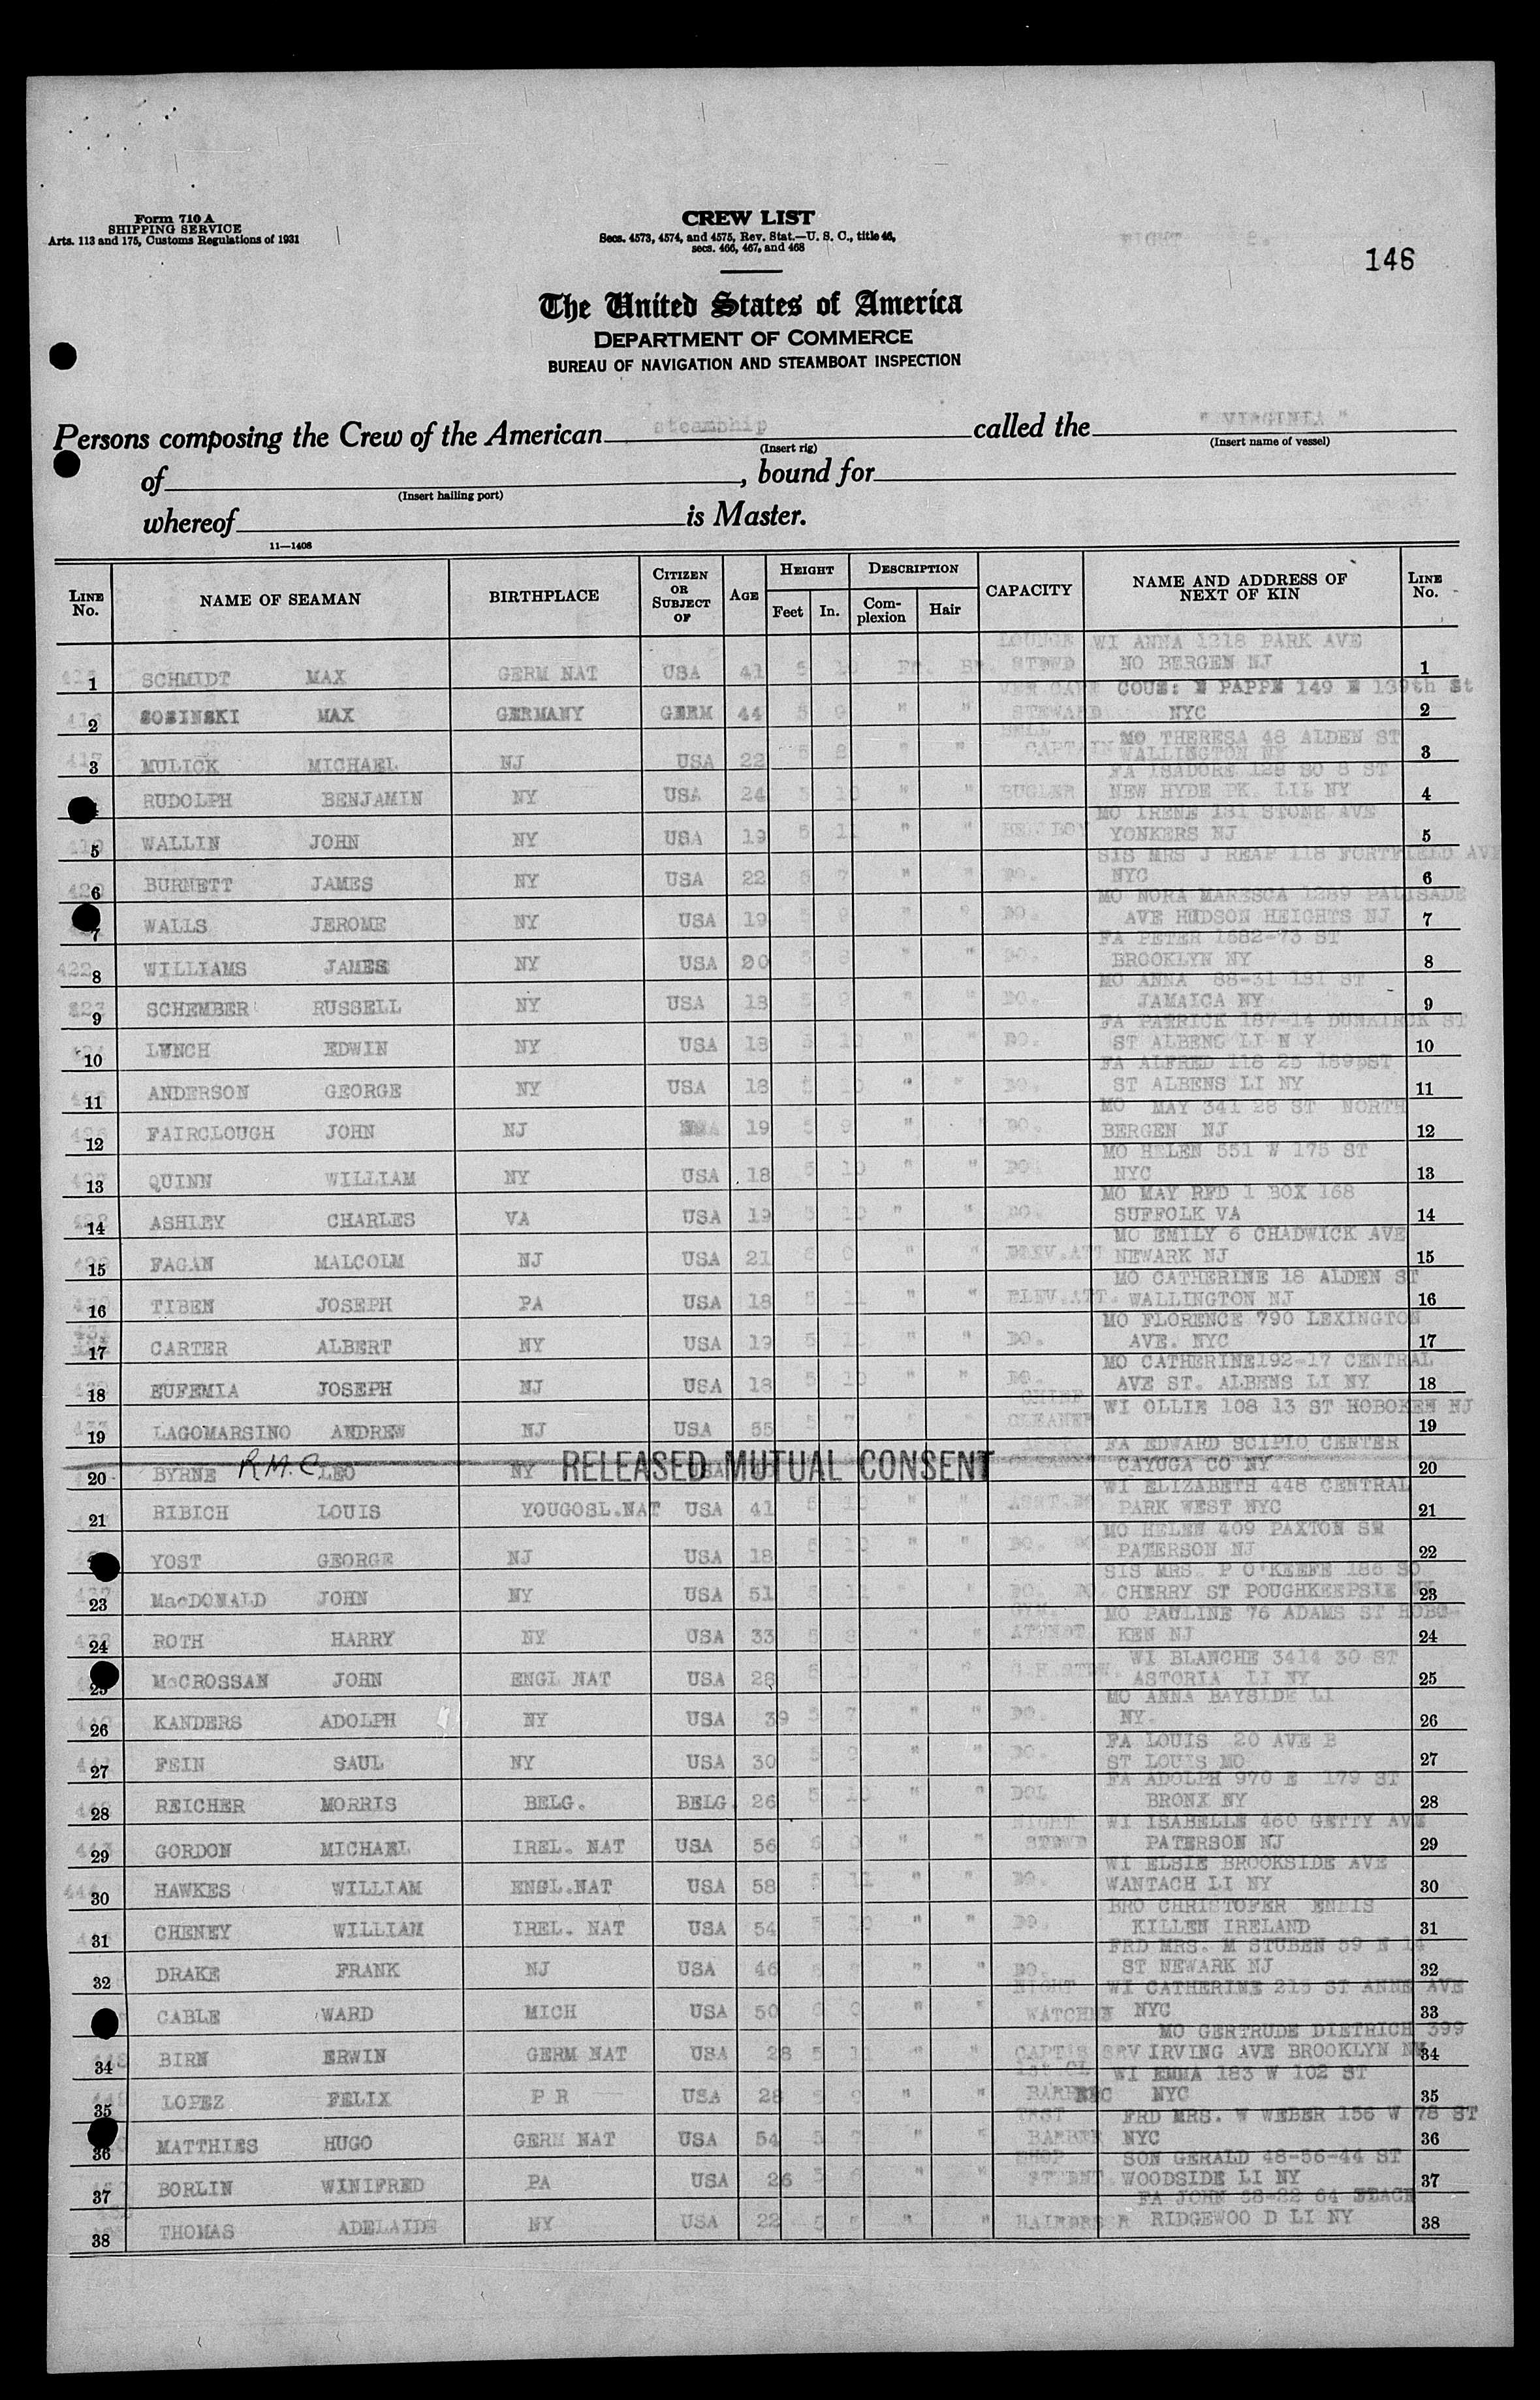 Form 710 A
SHIPPING SERVICE
Arts. 113 and 175, Customs Regulations of 1931
CREW LIST
Secs. 4573, 4574, and 4575, Rev. Stat.—U. S. C., title 46,
secs. 466, 467, and 468
146
The United States of America
DEPARTMENT OF COMMERCE
BUREAU OF NAVIGATION AND STEAMBOAT INSPECTION
Persons composing the Crew of the American steamship called the "VIRGINIA"
(Insert rig) (Insert name of vessel)
of , bound for
(Insert hailing port)
whereof is Master.
11—1408
LINE No. NAME OF SEAMAN BIRTHPLACE CITIZEN OR SUBJECT OF AGE HEIGHT Feet In. DESCRIPTION Complexion Hair CAPACITY NAME AND ADDRESS OF NEXT OF KIN LINE No.
LOUNGE WI ANNA 1218 PARK AVE
1 SCHMIDT MAX GERM NAT USA 41 5 10 STEWD NO BERGEN NJ 1
COUS: E PAPPE 149 E 139th St
2 SOSINSKI MAX GERMANY GERM 44 5 9 " " STEWARD NYC 2
BELL MO THERESA 48 ALDEN ST
3 MULICK MICHAEL NJ USA 22 5 8 " " CAPTAIN WALLINGTON NY 3
FA ISADORE 128 SO 8 ST
4 RUDOLPH BENJAMIN NY USA 24 5 10 " " BUGLER NEW HYDE PK. LIL NY 4
MO IRENE 181 STONE AVE
5 WALLIN JOHN NY USA 19 5 11 " " BELL BOY YONKERS NJ 5
SIS MRS J REAP 118 FORTFIELD AVE
6 BURNETT JAMES NY USA 22 5 7 " " DO. NYC 6
MO NORA MARESCA 1289 PALISADE
7 WALLS JEROME NY USA 19 5 9 " " DO. AVE HUDSON HEIGHTS NJ 7
FA PETER 1682-73 ST
8 WILLIAMS JAMES NY USA 20 5 " " DO. BROOKLYN NY 8
MO ANNA 88-31 181 ST
9 SCHEMBER RUSSELL NY USA 18 5 9 " " DO. JAMAICA NY 9
FA PARRICK 187-14 DUNKIRCK ST
10 LYNCH EDWIN NY USA 18 5 10 " " DO. ST ALBENG LI N Y 10
FA ALFRED 118 25 189 ST
11 ANDERSON GEORGE NY USA 18 5 10 " " DO. ST ALBENS LI NY 11
MO MAY 341 28 ST NORTH
12 FAIRCLOUGH JOHN NJ USA 19 5 9 " " DO. BERGEN NJ 12
MO HELEN 551 W 175 ST
13 QUINN WILLIAM NY USA 18 5 10 " " DO. NYC 13
MO MAY RFD 1 BOX 168
14 ASHLEY CHARLES VA USA 19 5 10 " " DO. SUFFOLK VA 14
MO EMILY 6 CHADWICK AVE
15 FAGAN MALCOLM NJ USA 21 6 0 " " ELEV.ATT NEWARK NJ 15
MO CATHERINE 18 ALDEN ST
16 TIBEN JOSEPH PA USA 18 5 11 " " ELEV.ATT. WALLINGTON NJ 16
MO FLORENCE 790 LEXINGTON
17 CARTER ALBERT NY USA 19 5 10 " " DO. AVE. NYC 17
MO CATHERINE192-17 CENTRAL
18 EUFEMIA JOSEPH NJ USA 18 5 10 " " DO. AVE ST. ALBENS LI NY 18
CHIEF WI OLLIE 108 13 ST HOBOKEN NJ
19 LAGOMARSINO ANDREW NJ USA 55 5 7 " " CLEANER 19
FA EDWARD SCIPIO CENTER
20 BYRNE R.M.C. LEO NY RELEASED MUTUAL CONSENT CAYUGA CO NY 20
WI ELIZABETH 448 CENTRAL
21 RIBICH LOUIS YOUGOSL.NAT USA 41 5 10 " " ASST.DO PARK WEST NYC 21
MO HELEN 409 PAXTON ST
22 YOST GEORGE NJ USA 18 5 10 " " DO. DO PATERSON NJ 22
SIS MRS. P O'KEEFE 186 SO
23 MacDONALD JOHN NY USA 51 5 11 " " DO. DO. CHERRY ST POUGHKEEPSIE 23
GYM. MO PAULINE 76 ADAMS ST HOBO-
24 ROTH HARRY NY USA 33 5 8 " " ATENDT. KEN NJ 24
WI BLANCHE 3414 30 ST
25 McCROSSAN JOHN ENGL NAT USA 28 5 10 " " ASTORIA LI NY 25
MO ANNA BAYSIDE LI
26 KANDERS ADOLPH NY USA 39 5 7 " " DO. NY. 26
FA LOUIS 20 AVE B
27 FEIN SAUL NY USA 30 5 9 " " DO. ST LOUIS MO 27
FA ADOLPH 970 E 179 ST
28 REICHER MORRIS BELG. BELG. 26 5 10 " " DOL BRONX NY 28
NIGHT WI ISABELLE 460 GETTY AVE
29 GORDON MICHAEL IREL. NAT USA 56 6 0 " " STEWD PATERSON NJ 29
WI ELSIE BROOKSIDE AVE
30 HAWKES WILLIAM ENGL.NAT USA 58 5 11 " " DO. WANTACH LI NY 30
BRO CHRISTOFER ENNIS
31 CHENEY WILLIAM IREL. NAT USA 54 5 10 " " DO. KILLEN IRELAND 31
FRD MRS. M STUBEN 59 N 14
32 DRAKE FRANK NJ USA 46 5 " " DO. ST NEWARK NJ 32
NIGHT WI CATHERINE 215 ST ANNE AVE
33 CABLE WARD MICH USA 50 " " WATCHMN NYC 33
MO GERTRUDE DIETRICH 399
34 BIRN ERWIN GERM NAT USA 28 5 11 " " CAPT'S SRV IRVING AVE BROOKLYN NY 34
1st CL WI EMMA 183 W 102 ST
35 LOPEZ FELIX P R USA 28 5 9 " " BARBER NYC 35
FRD MRS. W WEBER 156 W 78 ST
36 MATTHIES HUGO GERM NAT USA 54 5 7 " " BARBER NYC 36
SHOP SON GERALD 48-56-44 ST
37 BORLIN WINIFRED PA USA 26 5 " " WOODSIDE LI NY 37
FA JOHN 68-22 64 PLACE
38 THOMAS ADELAIDE NY USA 22 5 " " HAIRDRSR RIDGEWOO D LI NY 38